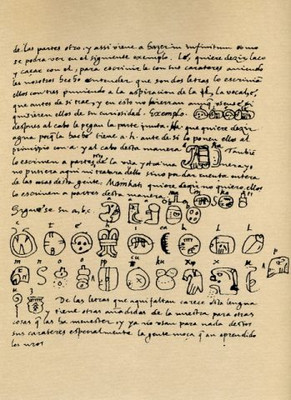 de las partes otro, y assi viene a hazer in infinitum como
se podra ver en el siguiente exemplo. Le, quiere dezir laço
y caçar con el, para escrivirle con sus carateres aviendo
les nosotros hecho entender que son dos letras lo escrivian
ellos con tres puniendo a la aspiracion de la l, la vocal e,
que antes de si trae, y en esto no hierran
quisieren ellos de su curiosidad. Exemplo.
despues al cabo le pegan la parte junta. Ha que quiere dezir
agua porq la hache tiene a. h. antes de si lo ponen ellos al
principio con a. y al cabo desta manera Tambie
lo escriven a partes pero de la una y otra manera, yo
no pusiera aqui ni tratara dello sino por dar cuenta entera
de las cosas desta gente. Mamkati quiere dezir no quiero ellos
lo escriven a partes desta manera
Siguese su a, b, c.
De las letras que aqui faltan carece esta lengua
y tiene otras añadidas de la nuestra para otras
cosas q las ha menester, y ya no usan para nada destos
sus carateres especialmente la gente moça q an aprendido
los nros